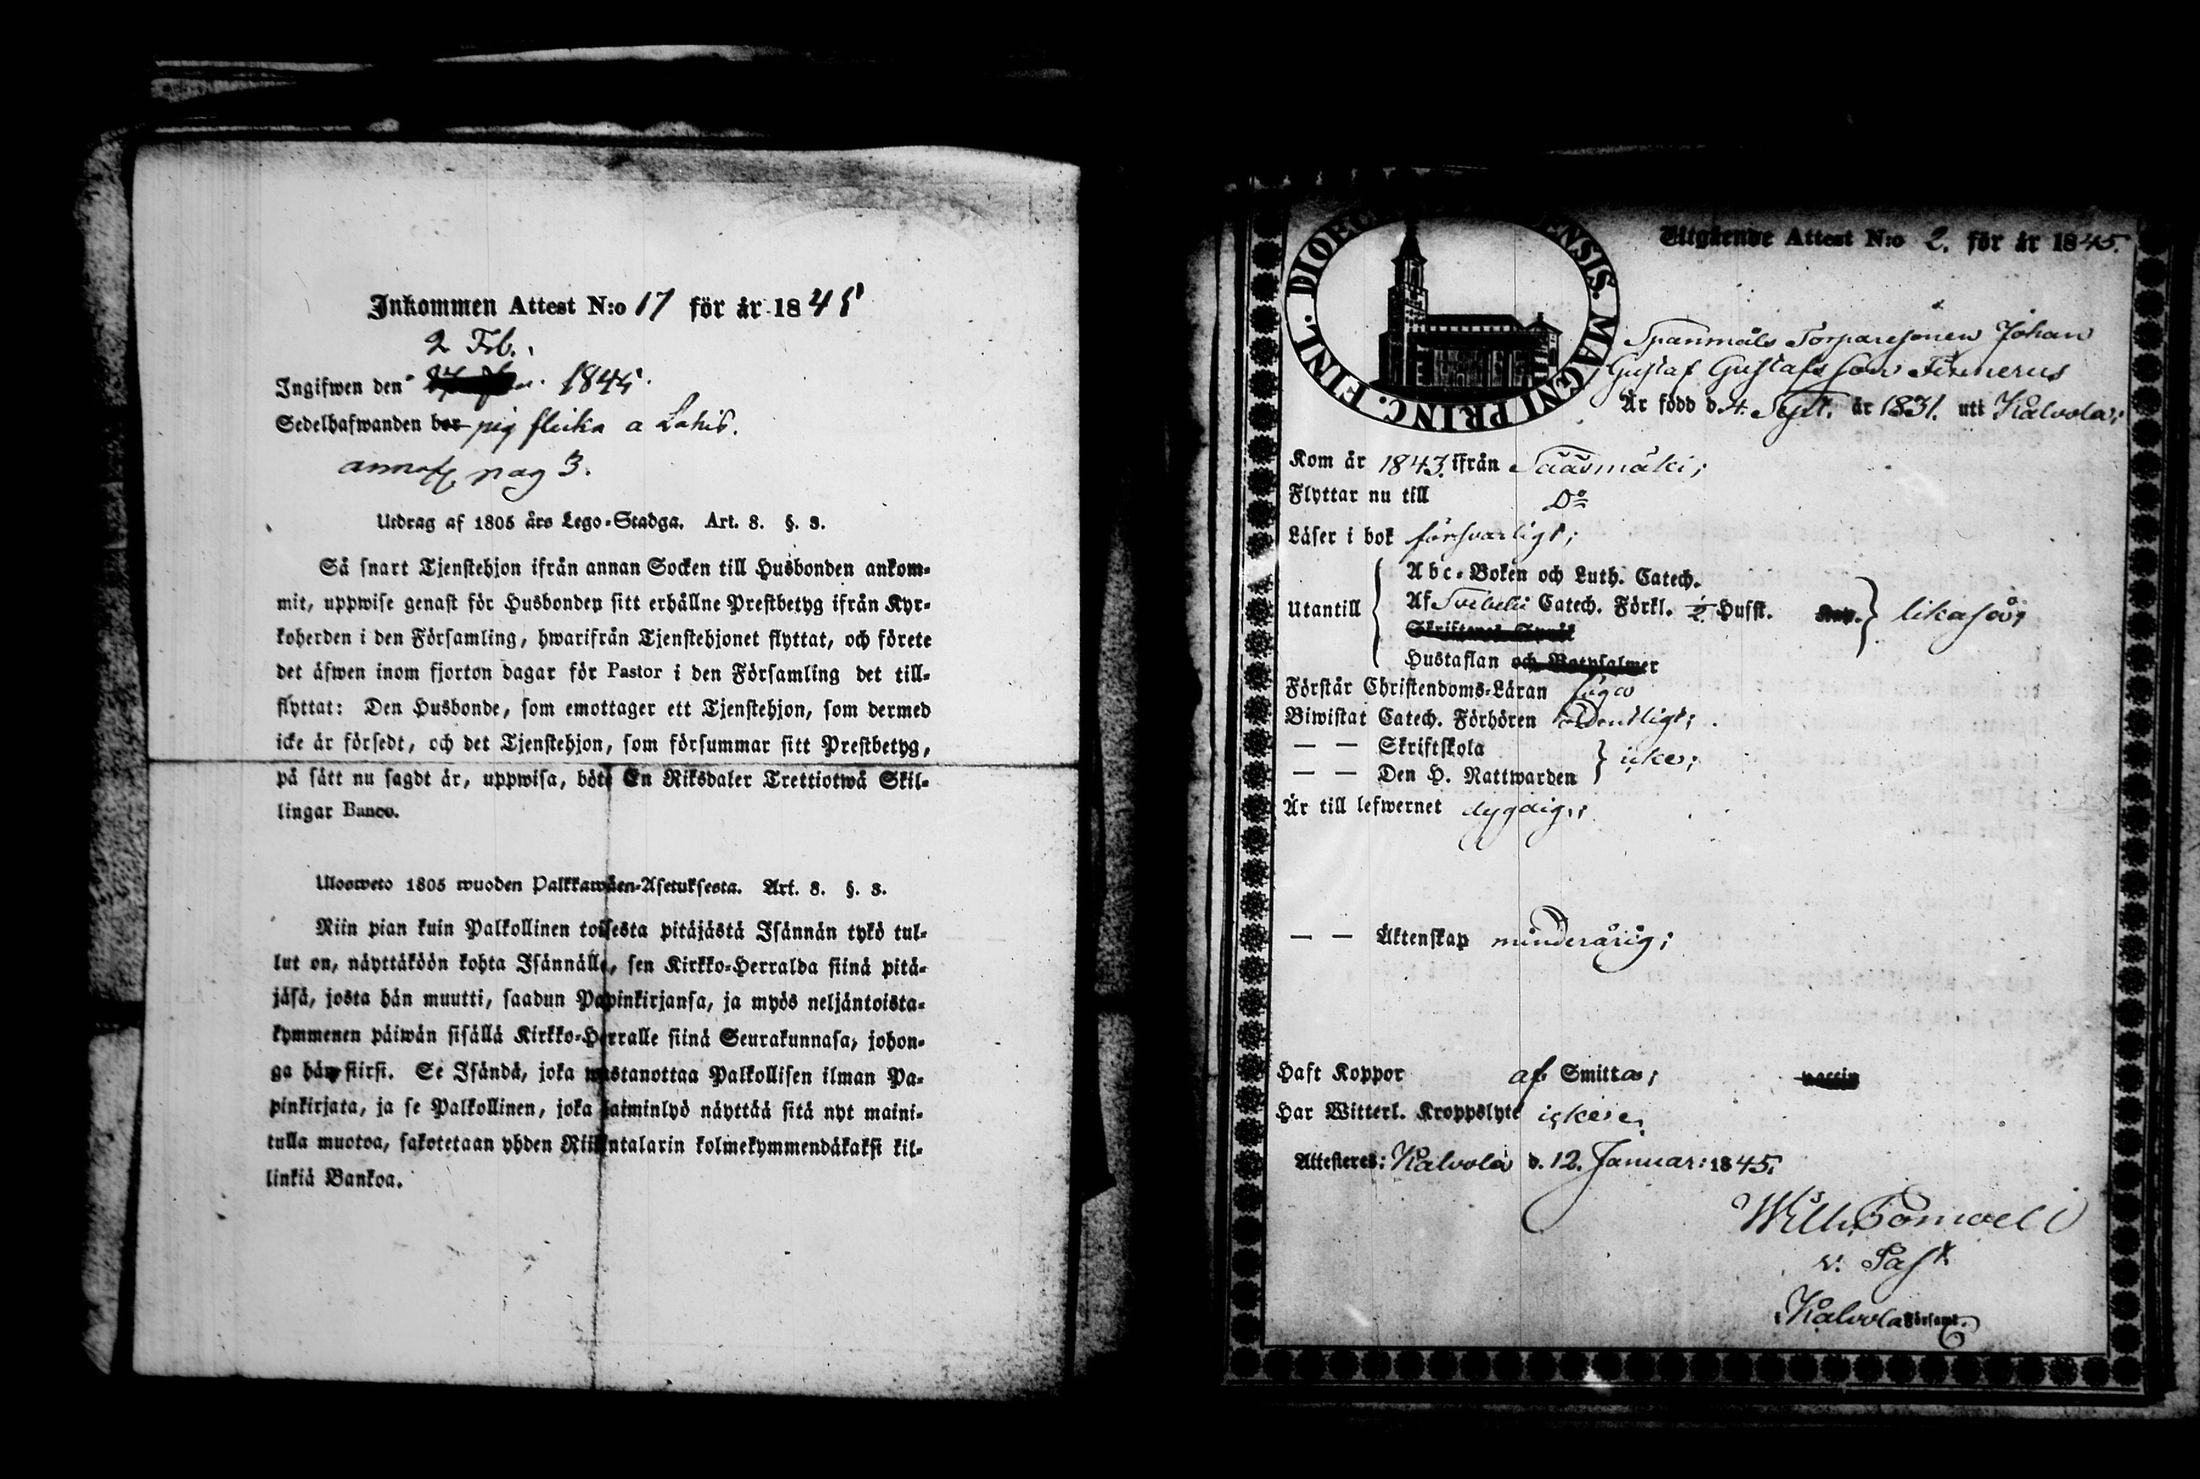 Inkommen Attest N:o 17 för år 1845
2 Feb.
Ingifwen den 1845.
Sedelhafwanden bor pig flicka a Lahis.
annot pag 3.
Utdrag af 1805 års Lego-Stadga. Art. 8. §. 3.
Så snart Tjenstehjon ifrån annan Socken till Husbonden ankom-
mit, uppwise genast för Husbonden sitt erhållne Prestbetyg ifrån Kyr-
koherden i den Församling, hwarifrån Tjenstehjonet flyttat, och förete
det äfwen inom fjorton dagar för Pastor i den Församling det till-
flyttat: Den Husbonde, som emottager ett Tjenstehjon, som dermed
icke är försedt, och det Tjenstehjon, som försummar sitt Prestbetyg,
på sätt nu sagdt är, uppwisa, böte En Riksdaler Trettiotwå Skil-
lingar Banco.
Ulosweto 1805 wuoden Palkkawäen-Asetuksesta. Art. 8. §. 3.
Niin pian kuin Palkollinen toisesta pitäjästä Isännän tykö tul-
lut on, näyttäköön kohta Isännälle, sen Kirkko-Herralda siinä pitä-
jäsä, josta hän muutti, saadun Papinkirjansa, ja myös neljäntoista-
kymmenen päiwän sisällä Kirkko-Herralle siinä Seurakunnasa, johon-
ga hän siirsi. Se Isändä, joka wastanottaa Palkollisen ilman Pa-
pinkirjata, ja se Palkollinen, joka laiminlyö näyttää sitä nyt maini-
tulla muotoa, sakotetaan yhden Riikintalarin kolmekymmendäkaksi kil-
linkiä Bankoa.
DIOEC ENSIS. MAGNI PRINC. FINL.
Utgående Attest N:o 2. för år 1845.
Spanmåls Torparesonen Johan
Gustaf Gustafsson Finnerus
Är född d. 4. Sept. år 1831. uti Kalvola;
Kom år 1843. ifrån Sääsmäki;
Flyttar nu till Do
Läser i bok försvarligt;
Utantill Abc-Boken och Luth. Catech.
Af Svebelii Catech. Förkl. ½ Hufst. likaså;
Skriftenes Språk
Hustaflan och Botpsalmer
Förstår Christendoms-Läran
Biwistat Catech. Förhören ordentligt;
— — Skriftskola
— — Den H. Nattwarden icke;
Är till lefwernet dygdig;
— — Äktenskap minderårig;
Haft Koppor af Smitta; waccin
Har Witterl. Kroppslyte icke
Attesteres: Kalvola d. 12. Januar: 1845.
Wilh.
v. Past.
Kalvola Församl.